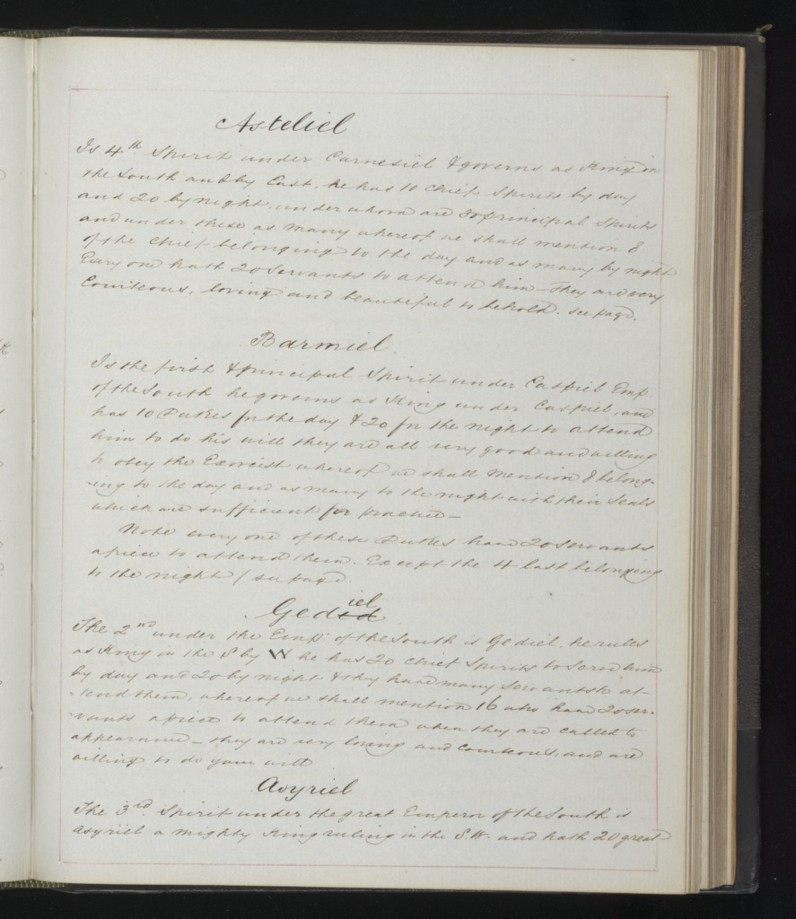 Asteliel
Is 4th Spirit under Carnesiel & governs as King in
the South and by East. he has 10 chief Spirits by day
and 20 by night. under whom are 30 principal Spirits
and under these as many whereof we shall mention 8
of the chief belonging to the day and as many by night
Every one hath 20 Servants to attend him - they are very
Courteous, loving and beautiful to behold. see page.
Barmiel.
Is the first & principal Spirit under Caspiel Emp:
of the South he governs as King under Caspiel, and
has 10 Dukes for the day & 20 for the night to attend
him to do his will they are all very good and willing
to obey the Exorcist whereof we shall mention 8 belong-
ing to the day and as many to the night with their Seals
which are sufficient for practice -
Note every one of these Dukes have 20 Servants
apiece to attend them. Except the 4 last belonging
to the night (see page
Gediel
The 2nd under the Emp: of the South is Gediel, he rules
as King in the S by W he has 20 chief Spirits to Serve him
by day and 20 by night & they have many Servants to at-
tend them, whereof we shall mention 16 who have 20 ser-
vants apiece to attend them when they are called to
appearance - they are very loving and Courteous, and are
willing to do your will
Asyriel
The 3rd. Spirit under the great Emperor of the South is
Asyriel a mighty King ruling in the S.W. and hath 20 great